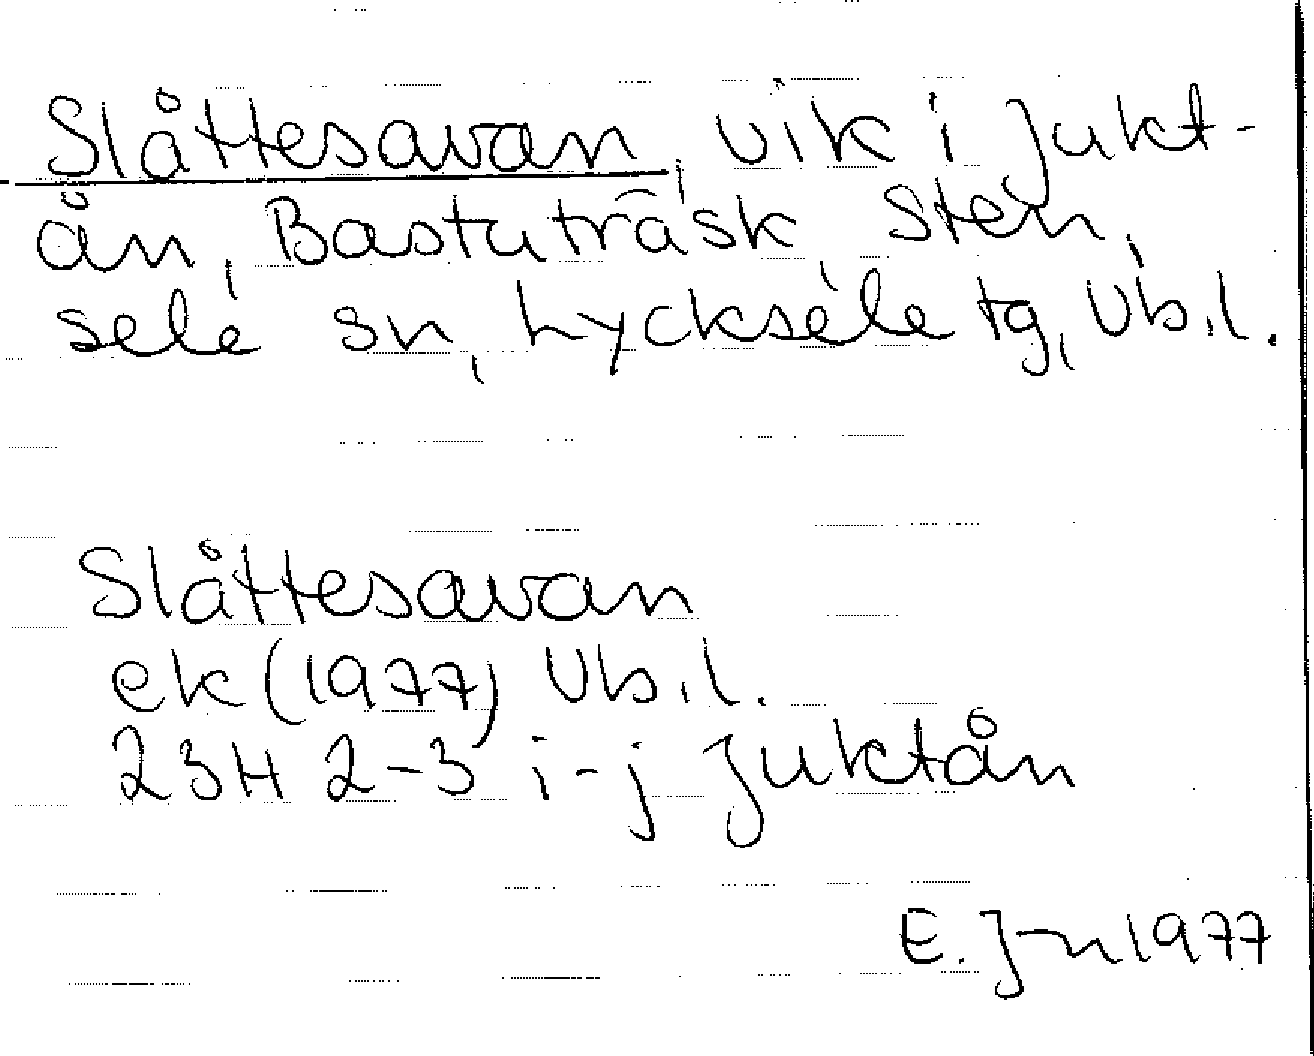 Slåttesavan, vik i Jukt-
ån, Bastuträsk, Sten,
sele sn, Lycksele tg, Vb.l.
Slåttesavan
ek (1977) Vb.l.
23H 2-3 i-j Juktån
E. J-n 1977